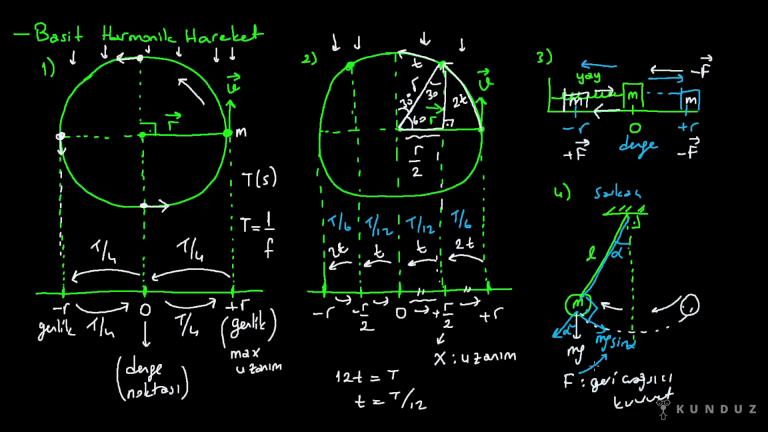 - Basit Harmonik Hareket
1)
V
r
m
T(s)
T = 1/f
T/4
T/4
-r
0
+r
genlik
T/4
T/4
(genlik)
max
uzanım
(denge
noktası)
2)
t
V
r
30
30
2t
60
r
r/2
T/6
T/12
T/12
T/6
2t
t
t
2t
-r
-r/2
0
+r/2
+r
X : uzanım
12t = T
t = T/12
3)
-F
yay
m
m
m
-r
0
+r
+F
denge
-F
4)
sarkaç
l
α
m
α
mg
mg sinα
F : geri çağırıcı
kuvvet
KUNDUZ